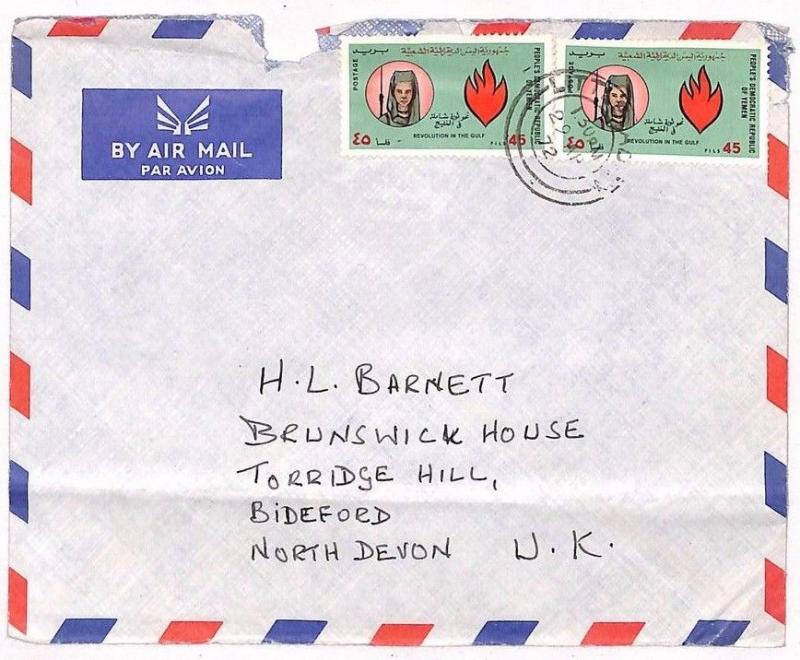 BY AIR MAIL
PAR AVION
POSTAGE
بريد
جمهورية اليمن الديمقراطية الشعبية
PEOPLE'S DEMOCRATIC REPUBLIC
OF YEMEN
نحو ثورة شاملة
في الخليج
REVOLUTION IN THE GULF
٤٥ فلسا
FILS 45
POSTAGE
بريد
جمهورية اليمن الديمقراطية الشعبية
PEOPLE'S DEMOCRATIC REPUBLIC
OF YEMEN
نحو ثورة شاملة
في الخليج
REVOLUTION IN THE GULF
٤٥
FILS 45
H. L. BARNETT
BRUNSWICK HOUSE
TORRIDGE HILL,
BIDEFORD
NORTH DEVON U. K.